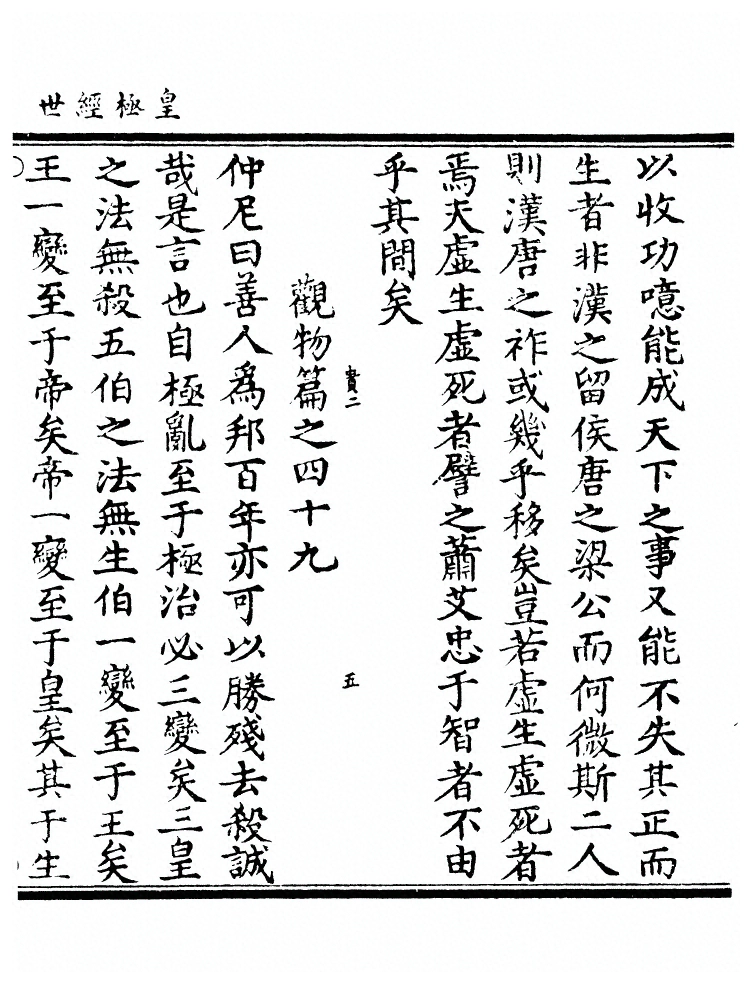 皇極經世
以收功噫能成天下之事又能不失其正而
生者非漢之留侯唐之梁公而何微斯二人
則漢唐之祚或幾乎移矣豈若虛生虛死者
焉夫虛生虛死者譬之蕭艾忠于智者不由
乎其間矣
貴二
五
觀物篇之四十九
仲尼曰善人爲邦百年亦可以勝殘去殺誠
哉是言也自極亂至于極治必三變矣三皇
之法無殺五伯之法無生伯一變至于王矣
王一變至于帝矣帝一變至于皇矣其于生